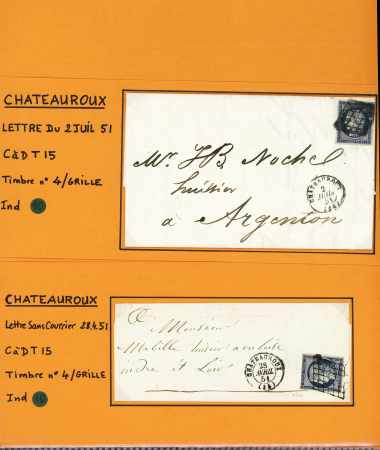 CHATEAUROUX
LETTRE DU 2 JUIL 51
CàD T 15
Timbre n° 4/GRILLE
Ind 10
Mr. J.B. Nochel
huissier
à Argenton
CHATEAUROUX
2
JUIL.
51
(35)
CHATEAUROUX
Lettre Sans Courrier 28.4.51
CàD T 15
Timbre n° 4/GRILLE
Ind 10
Monsieur
Mabille huissier a amboise
indre et Loire
CHATEAUROUX
28
AVRIL
51
(35)